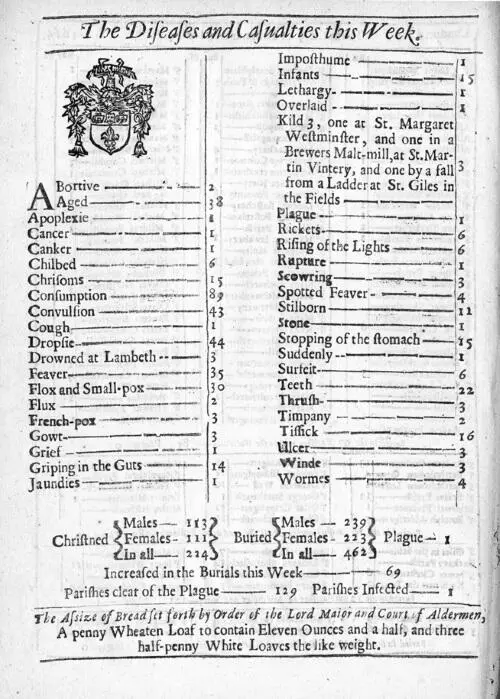 The Diſeaſes and Caſualties this Week.
ABortive 2
Aged 38
Apoplexie 1
Cancer 1
Canker 1
Chilbed 6
Chriſoms 15
Conſumption 89
Convulſion 43
Cough 1
Dropſie 44
Drowned at Lambeth 3
Feaver 35
Flox and Small-pox 30
Flux 2
French-pox 3
Gowt 3
Grief 1
Griping in the Guts 14
Jaundies 1
Impoſthume 1
Infants 15
Lethargy 1
Overlaid 1
Kild 3, one at St. Margaret
Weſtminſter, and one in a
Brewers Malt-mill, at St. Mar-
tin Vintery, and one by a fall
from a Ladder at St. Giles in
the Fields 3
Plague 1
Rickets 6
Riſing of the Lights 6
Rupture 1
Scowring 3
Spotted Feaver 4
Stilborn 11
Stone 1
Stopping of the ſtomach 15
Suddenly 1
Surfeit 6
Teeth 22
Thruſh 3
Timpany 2
Tiſſick 16
Ulcer 3
Winde 3
Wormes 4
Chriſtned Males 113 Females 111 In all 224
Buried Males 239 Females 223 In all 462
Plague 1
Increaſed in the Burials this Week 69
Pariſhes clear of the Plague 129 Pariſhes Infected 1
The Aſſize of Bread ſet forth by Order of the Lord Maior and Court of Aldermen,
A penny Wheaten Loaf to contain Eleven Ounces and a half, and three
half-penny White Loaves the like weight.